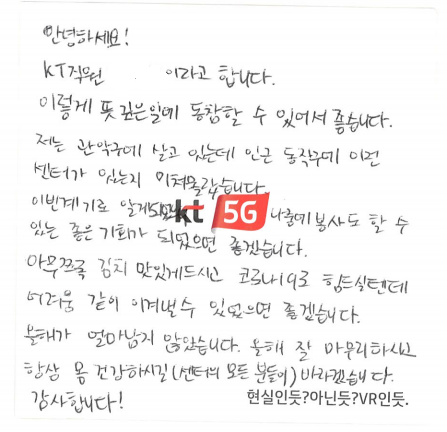 안녕하세요!
KT직원 이라고 합니다.
이렇게 뜻 깊은일에 동참할 수 있어서 좋습니다.
저는 관악구에 살고 있는데 인근 동작구에 이런
센터가 있는지 미쳐몰랐습니다.
이번계기로 알게되 kt 5G 나중에봉사도 할 수
있는 좋은 기회가 되었으면 좋겠습니다.
아무쪼록 김치 맛있게드시고 코로나19로 힘드실텐데
어려움 같이 이겨낼수 있었으면 좋겠습니다.
올해가 얼마남지 않았습니다. 올해 잘 마무리하시고
항상 몸 건강하시길(센터의 모든 분들이) 바라겠습니다.
감사합니다!
현실인듯?아닌듯?VR인듯.